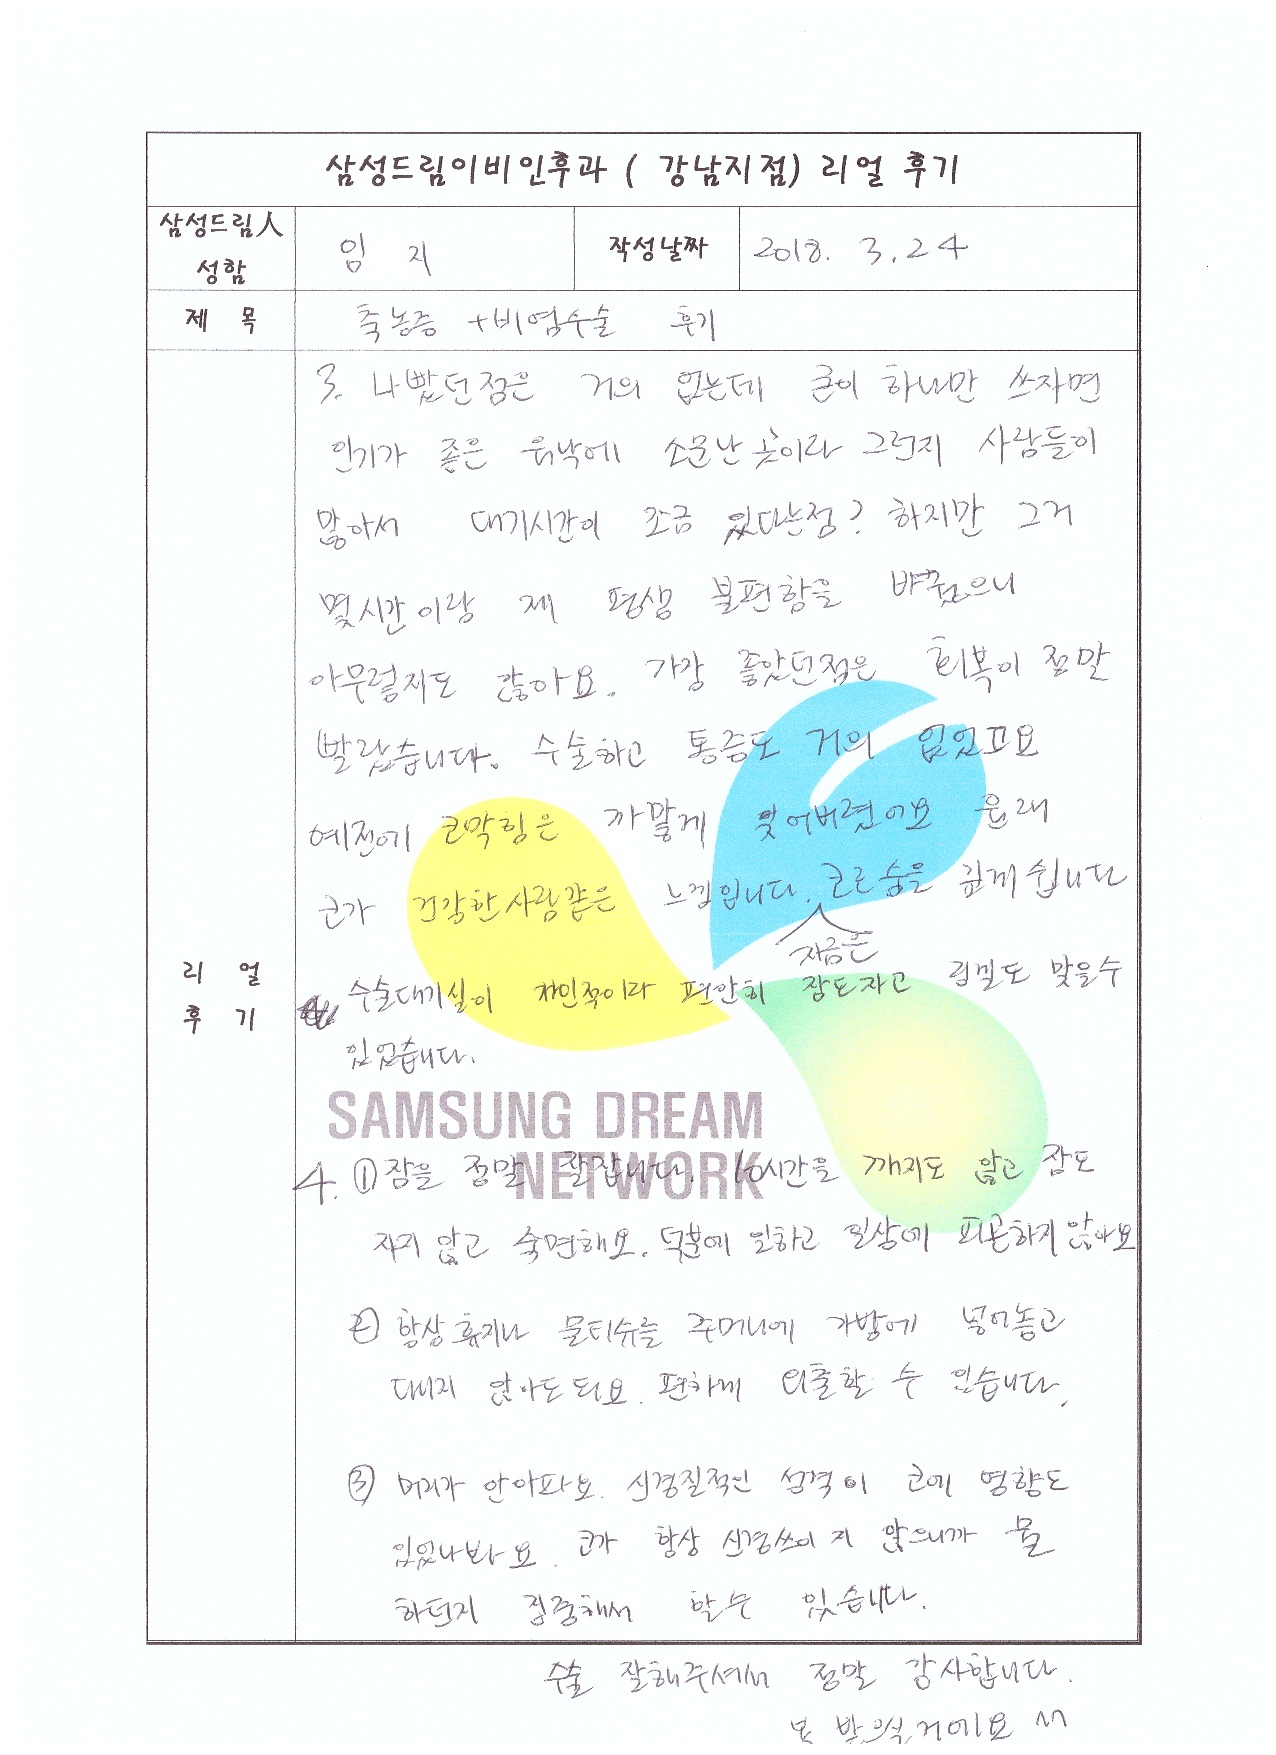 삼성드림이비인후과 ( 강남지점) 리얼 후기
삼성드림人 성함
임 지
작성날짜
2018. 3. 24
제 목
축농증 +비염수술 후기
리 얼 후 기
3. 나빴던점은 거의 없는데 굳이 하나만 쓰자면
인기가 좋은 워낙에 소문난 곳이라 그런지 사람들이
많아서 대기시간이 조금 있다는점? 하지만 그거
몇시간이랑 제 평생 불편함을 바꿨으니
아무렇지도 않아요. 가장 좋았던점은 회복이 정말
빨랐습니다. 수술하고 통증도 거의 없었고요
예전에 코막힘은 까맣게 잊어버렸어요 원래
코가 건강한사람같은 느낌입니다. 코로 숨을 쉽니다
지금은
수술대기실이 개인적이라 편안히 잠도자고 링겔도 맞을수
있었습니다.
SAMSUNG DREAM
NETWORK
4. ① 잠을 정말 잘잡니다. 10시간을 깨지도 않고 잠도
자지 않고 숙면해요. 덕분에 일하고 일상에 피곤하지 않아요
② 항상 휴지나 물티슈를 주머니에 가방에 넣어놓고
대지 않아도 되요. 편하게 외출할 수 있습니다.
③ 머리가 안아파요. 신경질적인 성격이 코에 영향도
있었나봐요. 코가 항상 신경쓰이지 않으니까 뭘
하던지 집중해서 할수 있습니다.
수술 잘해주셔서 정말 감사합니다.
복 받으실거에요 ^^